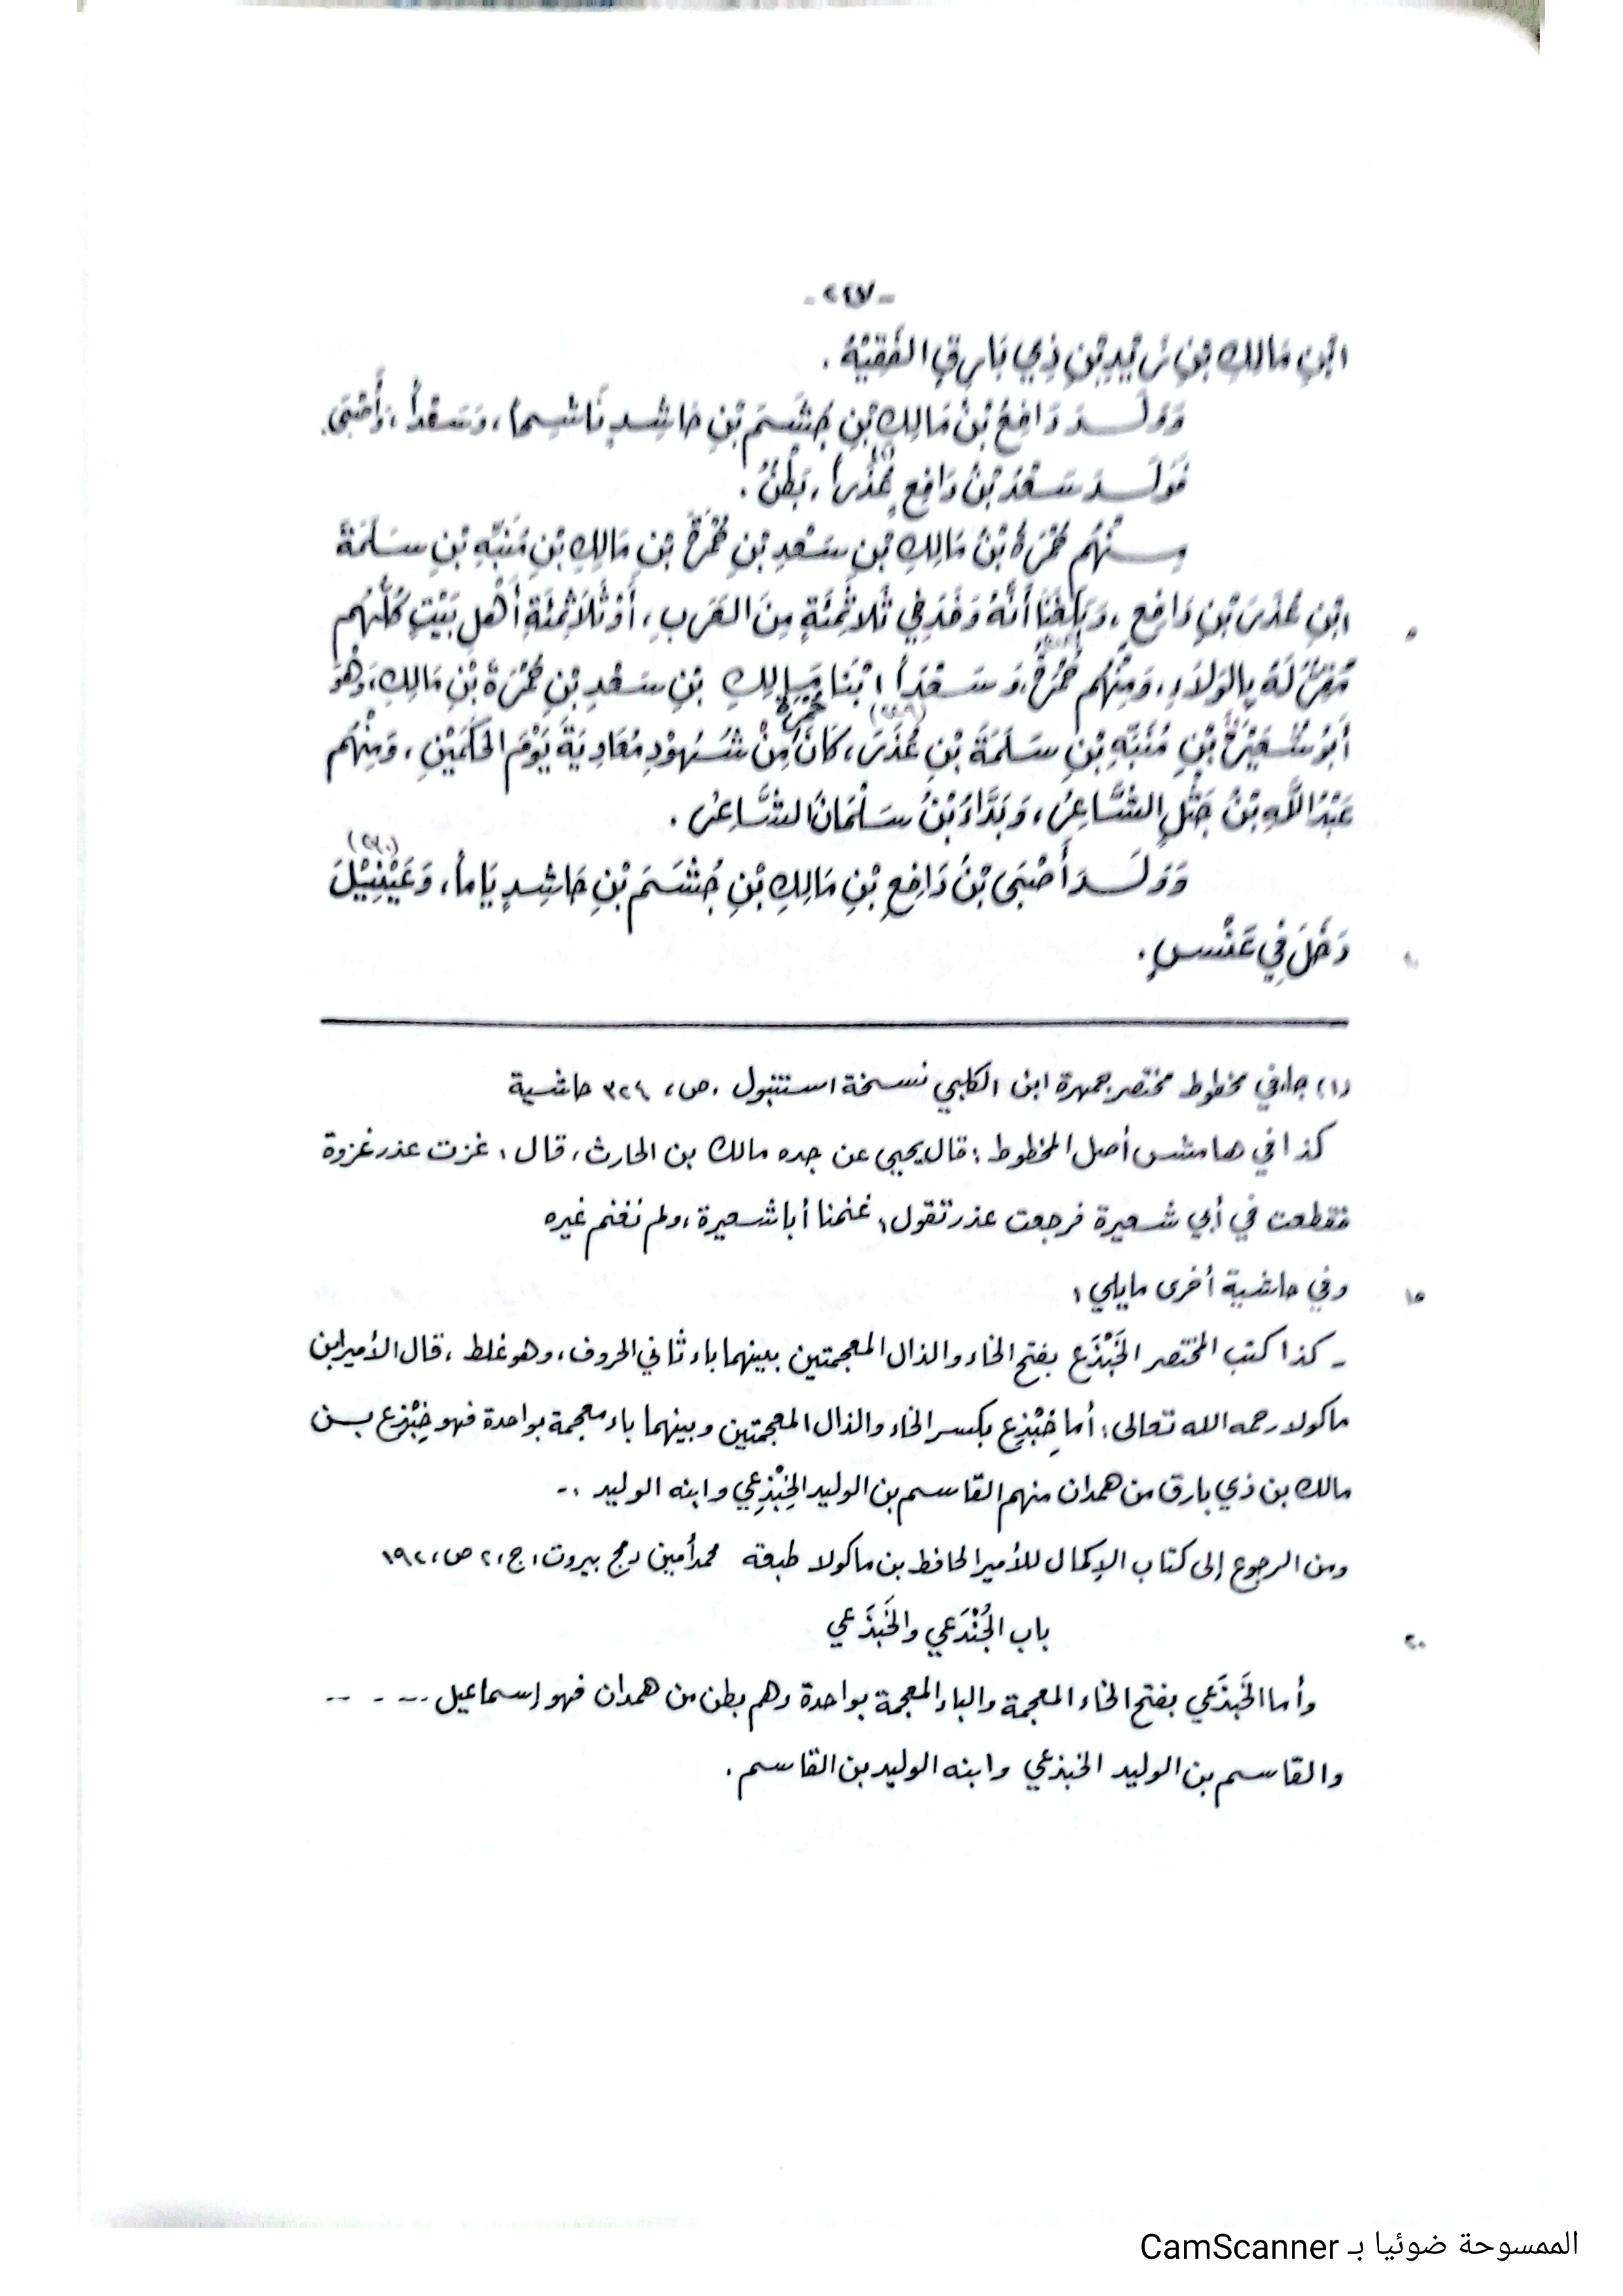 - ٢٢٧ -
ابْنِ مَالِكِ بْنِ زَيْدِ بْنِ ذِي بَارِقٍ الفَقِيْهُ .
وَوَلَــدَ دَافِعُ بْنُ مَالِكِ بْنِ جُشَمَ بْنِ حَاشِدٍ نَاشِجاً ، وَسَعْداً ، وَأَصْبَى .
فَوَلَــدَ سَعْدُ بْنُ دَافِعٍ عُذَرَاً ، بَطْنٌ .
مِــنْهُم حُمْرَةُ بْنُ مَالِكِ بْنِ سَعْدِ بْنِ حُمْرَةَ بْنِ مَالِكِ بْنِ مُنَبِّهِ بْنِ سَلَمَةَ
ابْنِ عُذَرَ بْنِ دَافِعٍ ، وَبَلَغَنَا أَنَّهُ وَفَدَ فِي ثَلاثِمِئَةٍ مِنَ العَرَبِ ، أَوْ ثَلَاثِمِئَةِ أَهْلِ بَيْتٍ كُلُّهُم ٥
مُقِرٌّ لَهُ بِالوَلَاءِ ، وَمِنْهُم حُمْرَةُ ، وَسَعْدَاً ابْنَا مَالِكِ بْنِ سَعْدِ بْنِ حُمْرَةَ بْنِ مَالِكِ ، وَهُوَ
أَبُو شُعَيْرَةَ بْنِ مُنَبِّهِ بْنِ سَلَمَةَ بْنِ عُذَرَ ، كَانَ حمرة مِنْ شُهُوْدِ مُعَاوِيَةَ يَوْمَ الحَكَمَيْنِ ، وَمِنْهُم
عَبْدُ اللَّهِ بْنُ جَثْلٍ الشَّاعِرُ ، وَبَدَّاءُ بْنُ سَلْمَانَ الشَّاعِرُ .
وَوَلَــدَ أَصْبَى بْنُ دَافِعِ بْنِ مَالِكِ بْنِ جُشَمَ بْنِ حَاشِدٍ يَاماً ، وَغَيْنِيْلَ
دَخَلَ فِي عَنْسٍ . ١٠
(١) جاء في مخطوط مختصر جمهرة ابن الكلبي نسخة استنبول ، ص ، ٣٢٤ حاشية
كذا في هامش أصل المخطوط : قال يحيى عن جده مالك بن الحارث ، قال : غزت عذر غزوة
فقطعت في أبي شعيرة فرجعت عذر تقول : غنمنا أبا شعيرة ، ولم نغنم غيره
وفي حاشية أخرى ما يلي : ١٥
- كذا كتب المختصر الخَبْذَع بفتح الخاء والذال المعجمتين بينهما باء ثاني الحروف ، وهو غلط ، قال الأمير ابن
ماكولا رحمه الله تعالى : أما خِبْذِع بكسر الخاء والذال المعجمتين وبينهما باء معجمة بواحدة فهو خِبْذِع بــن
مالك بن ذي بارق من همدان منهم القاسم بن الوليد الخِبْذِعي وابنه الوليد .-
ومن الرجوع إلى كتاب الإكمال للأمير الحافظ بن ماكولا طبعة محمد أمين دمج بيروت ، ج ، ٢ ص ، ١٩٢
باب الجُنْدَعي والخَبذَعي ٢٠
وأما الخَبذَعي بفتح الخاء المعجمة والباء المعجمة بواحدة وهم بطن من همدان فهو إسماعيل .-- - --
والقاسم بن الوليد الخبذعي وابنه الوليد بن القاسم .
الممسوحة ضوئيا بـ CamScanner